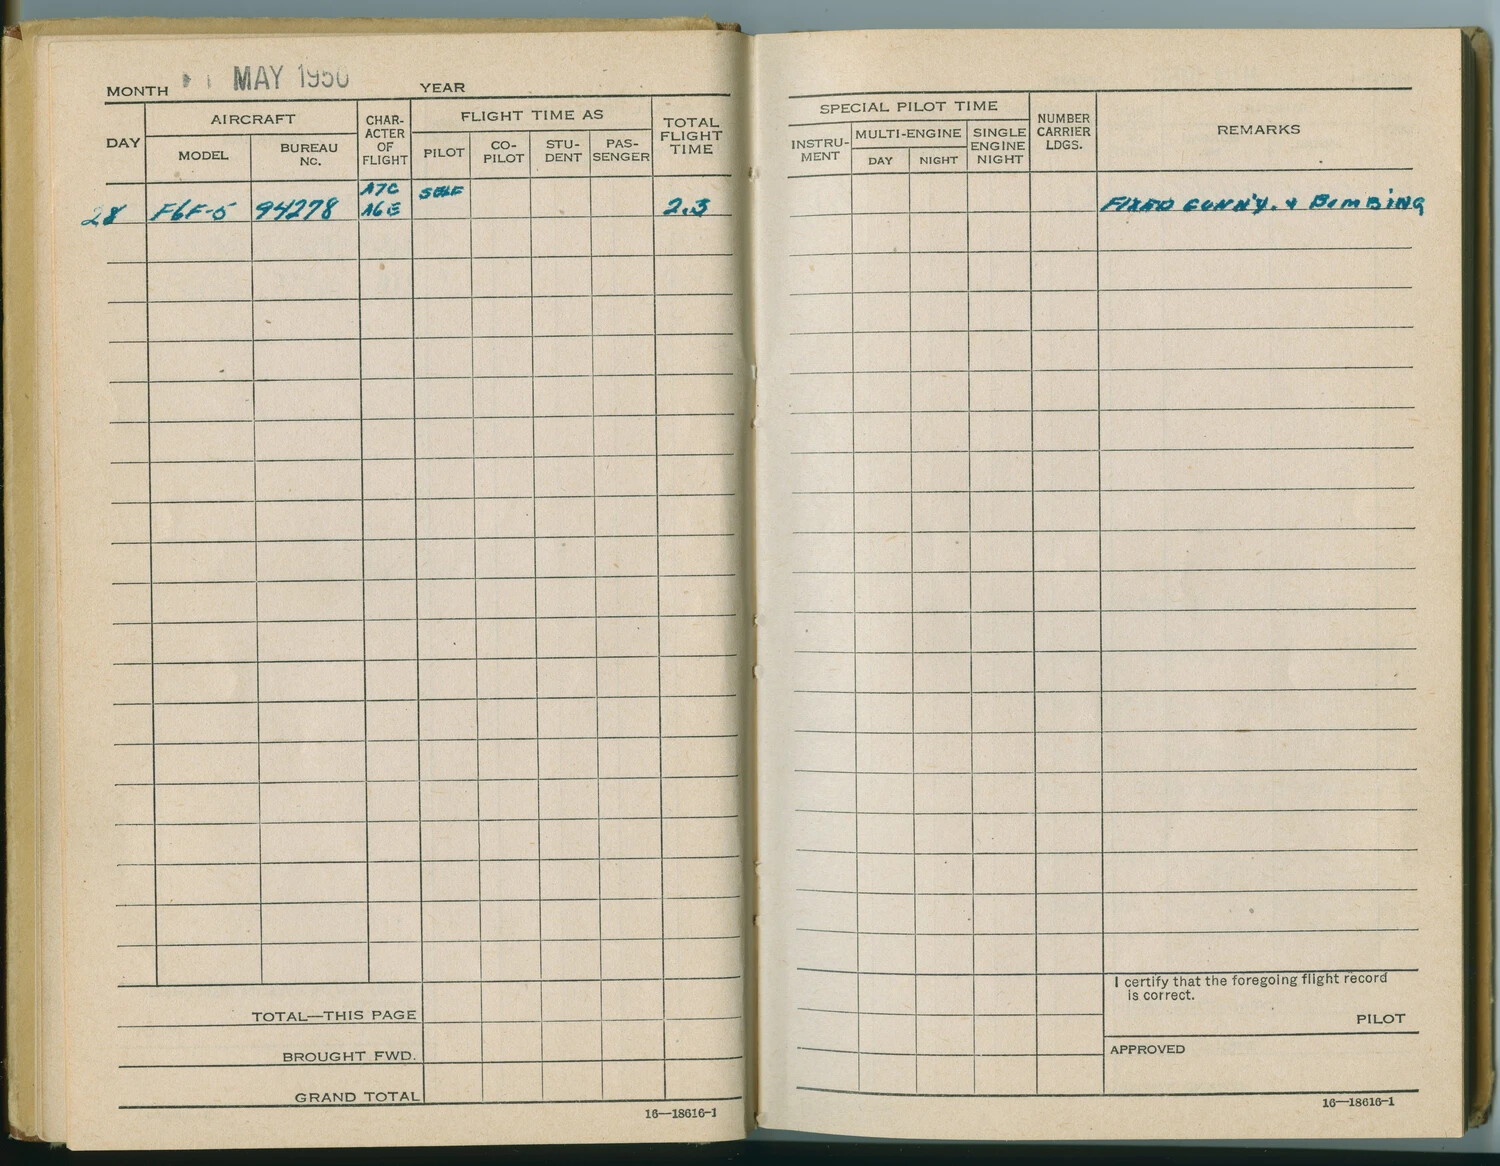 MONTH MAY 1950 YEAR
DAY
AIRCRAFT
MODEL
BUREAU
No.
CHAR-
ACTER
OF
FLIGHT
FLIGHT TIME AS
PILOT
CO-
PILOT
STU-
DENT
PAS-
SENGER
TOTAL
FLIGHT
TIME
SPECIAL PILOT TIME
INSTRU-
MENT
MULTI-ENGINE
DAY
NIGHT
SINGLE
ENGINE
NIGHT
NUMBER
CARRIER
LDGS.
REMARKS
A7C SELF
28 F6F-5 94278 A6E 2.3 FIXED GUNN'Y. & BOMBING
TOTAL—THIS PAGE
BROUGHT FWD.
GRAND TOTAL
16—18616-1
I certify that the foregoing flight record
is correct.
PILOT
APPROVED
16—18616-1